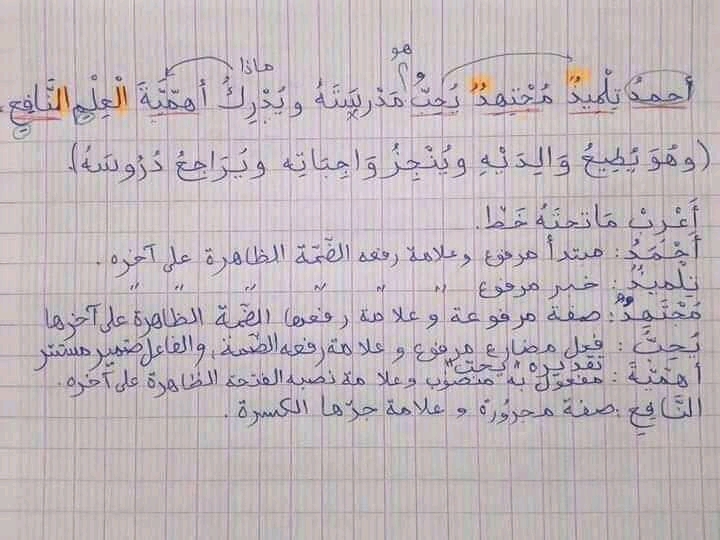 هو
ماذا
أحمدُ تِلْميذٌ مُجْتهِدٌ يُحِبُّ مَدْرسَتَهُ ويُدْرِكُ أهمِّيَّةَ الْعِلْمِ النَّافِعِ.
(وهُوَ يُطِيعُ وَالِدَيْهِ ويُنْجِزُ وَاجِبَاتِه ويُرَاجِعُ دُرُوسَهُ).
أَعْرِبْ مَاتحتَهُ خَطّ.
أَحْمَدُ: مبتدأ مرفوع وعلامة رفعه الضّمّة الظاهرة على آخره.
تِلْميذٌ: خبر مرفوع " " " " "
مُجْتَهِدٌ: صفة مرفوعة وعلامة رفعها الضّمة الظاهرة على آخرها
يُحِبُّ: فعل مضارع مرفوع وعلامة رفعه الضّمة، والفاعل ضمير مستتر
تقديره "يحب"
أهمِّيَّةَ: مفعول به منصوب وعلامة نصبه الفتحة الظاهرة على آخره.
النَّافِعِ: صفة مجرورة وعلامة جرّها الكسرة.